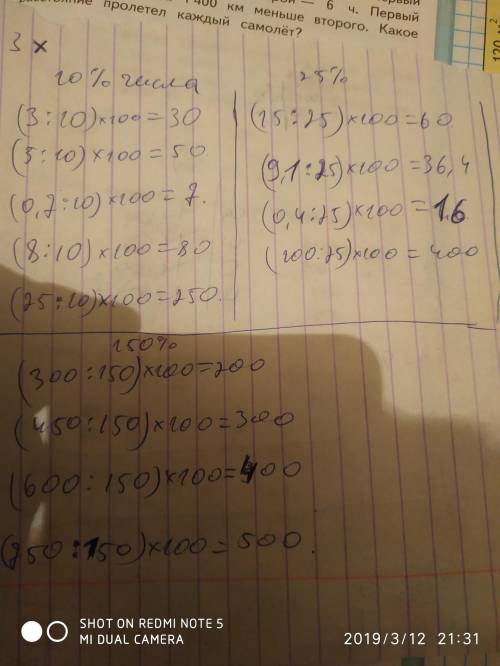 1400 км меньше второго. Какое
расстояние пролетел каждый самолёт?
120
3 ×
10% числа
(3:10)×100=30
(5:10)×100=50
(0,7:10)×100=7.
(8:10)×100=80
(25:10)×100=250.
25%
(15:25)×100=60
(9,1:25)×100=36,4
(0,4:25)×100=1.6
(100:25)×100=400
150%
(300:150)×100=200
(450:150)×100=300
(600:150)×100=400
(750:150)×100=500.
SHOT ON REDMI NOTE 5
MI DUAL CAMERA
2019/3/12 21:31